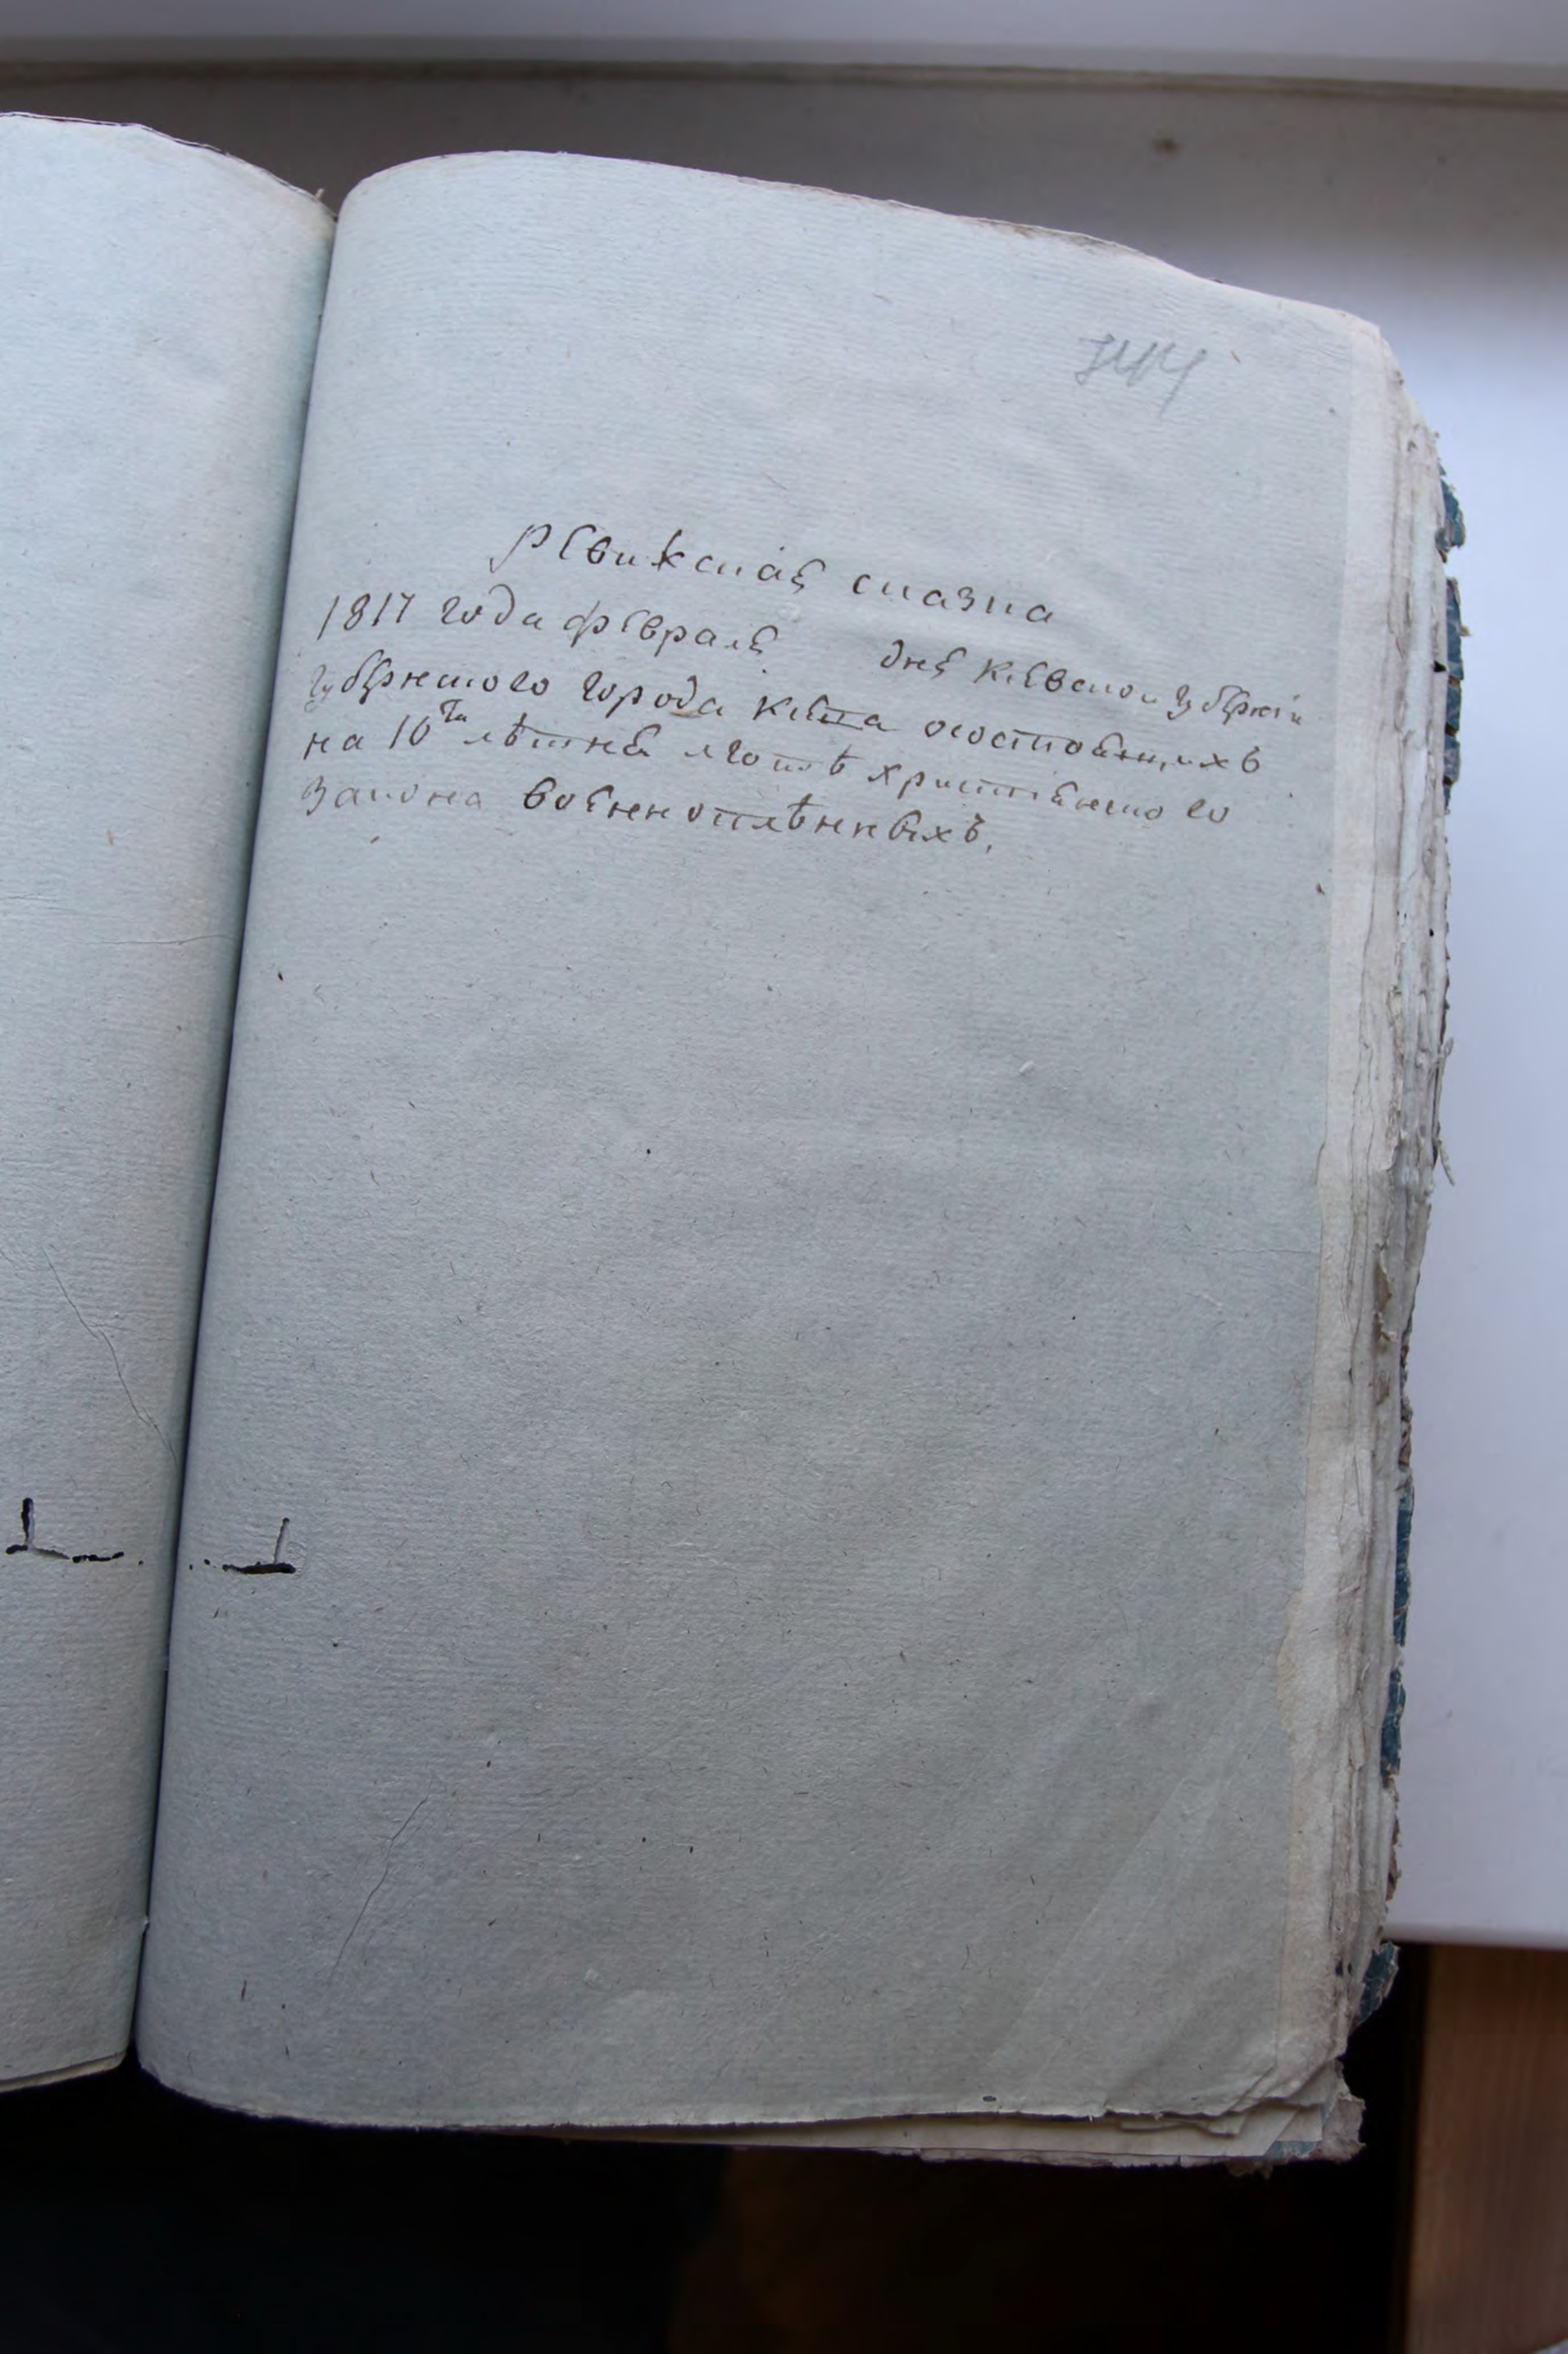 744
Ревижская сказка
1817 года февраля дня киевской губернии
губернского города киева осостоящихъ
на 10ти лѣтней лготѣ христианского
закона военноплѣнныхъ.